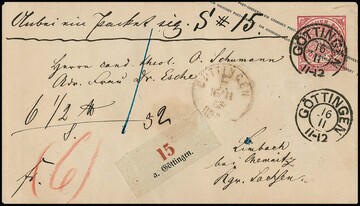 Anbei ein Packet sig. S # 15.
GÖTTINGEN
16
11
11-12
Herrn cand. theol. O. Schumann
Adr. Frau Dr. Esche
GÖTTINGEN
16/11
6 1/2 th
32
GÖTTINGEN
16
11
11-12
15
a. Göttingen.
Limbach
bei Chemnitz
Kgr. Sachsen
fr.
(6)